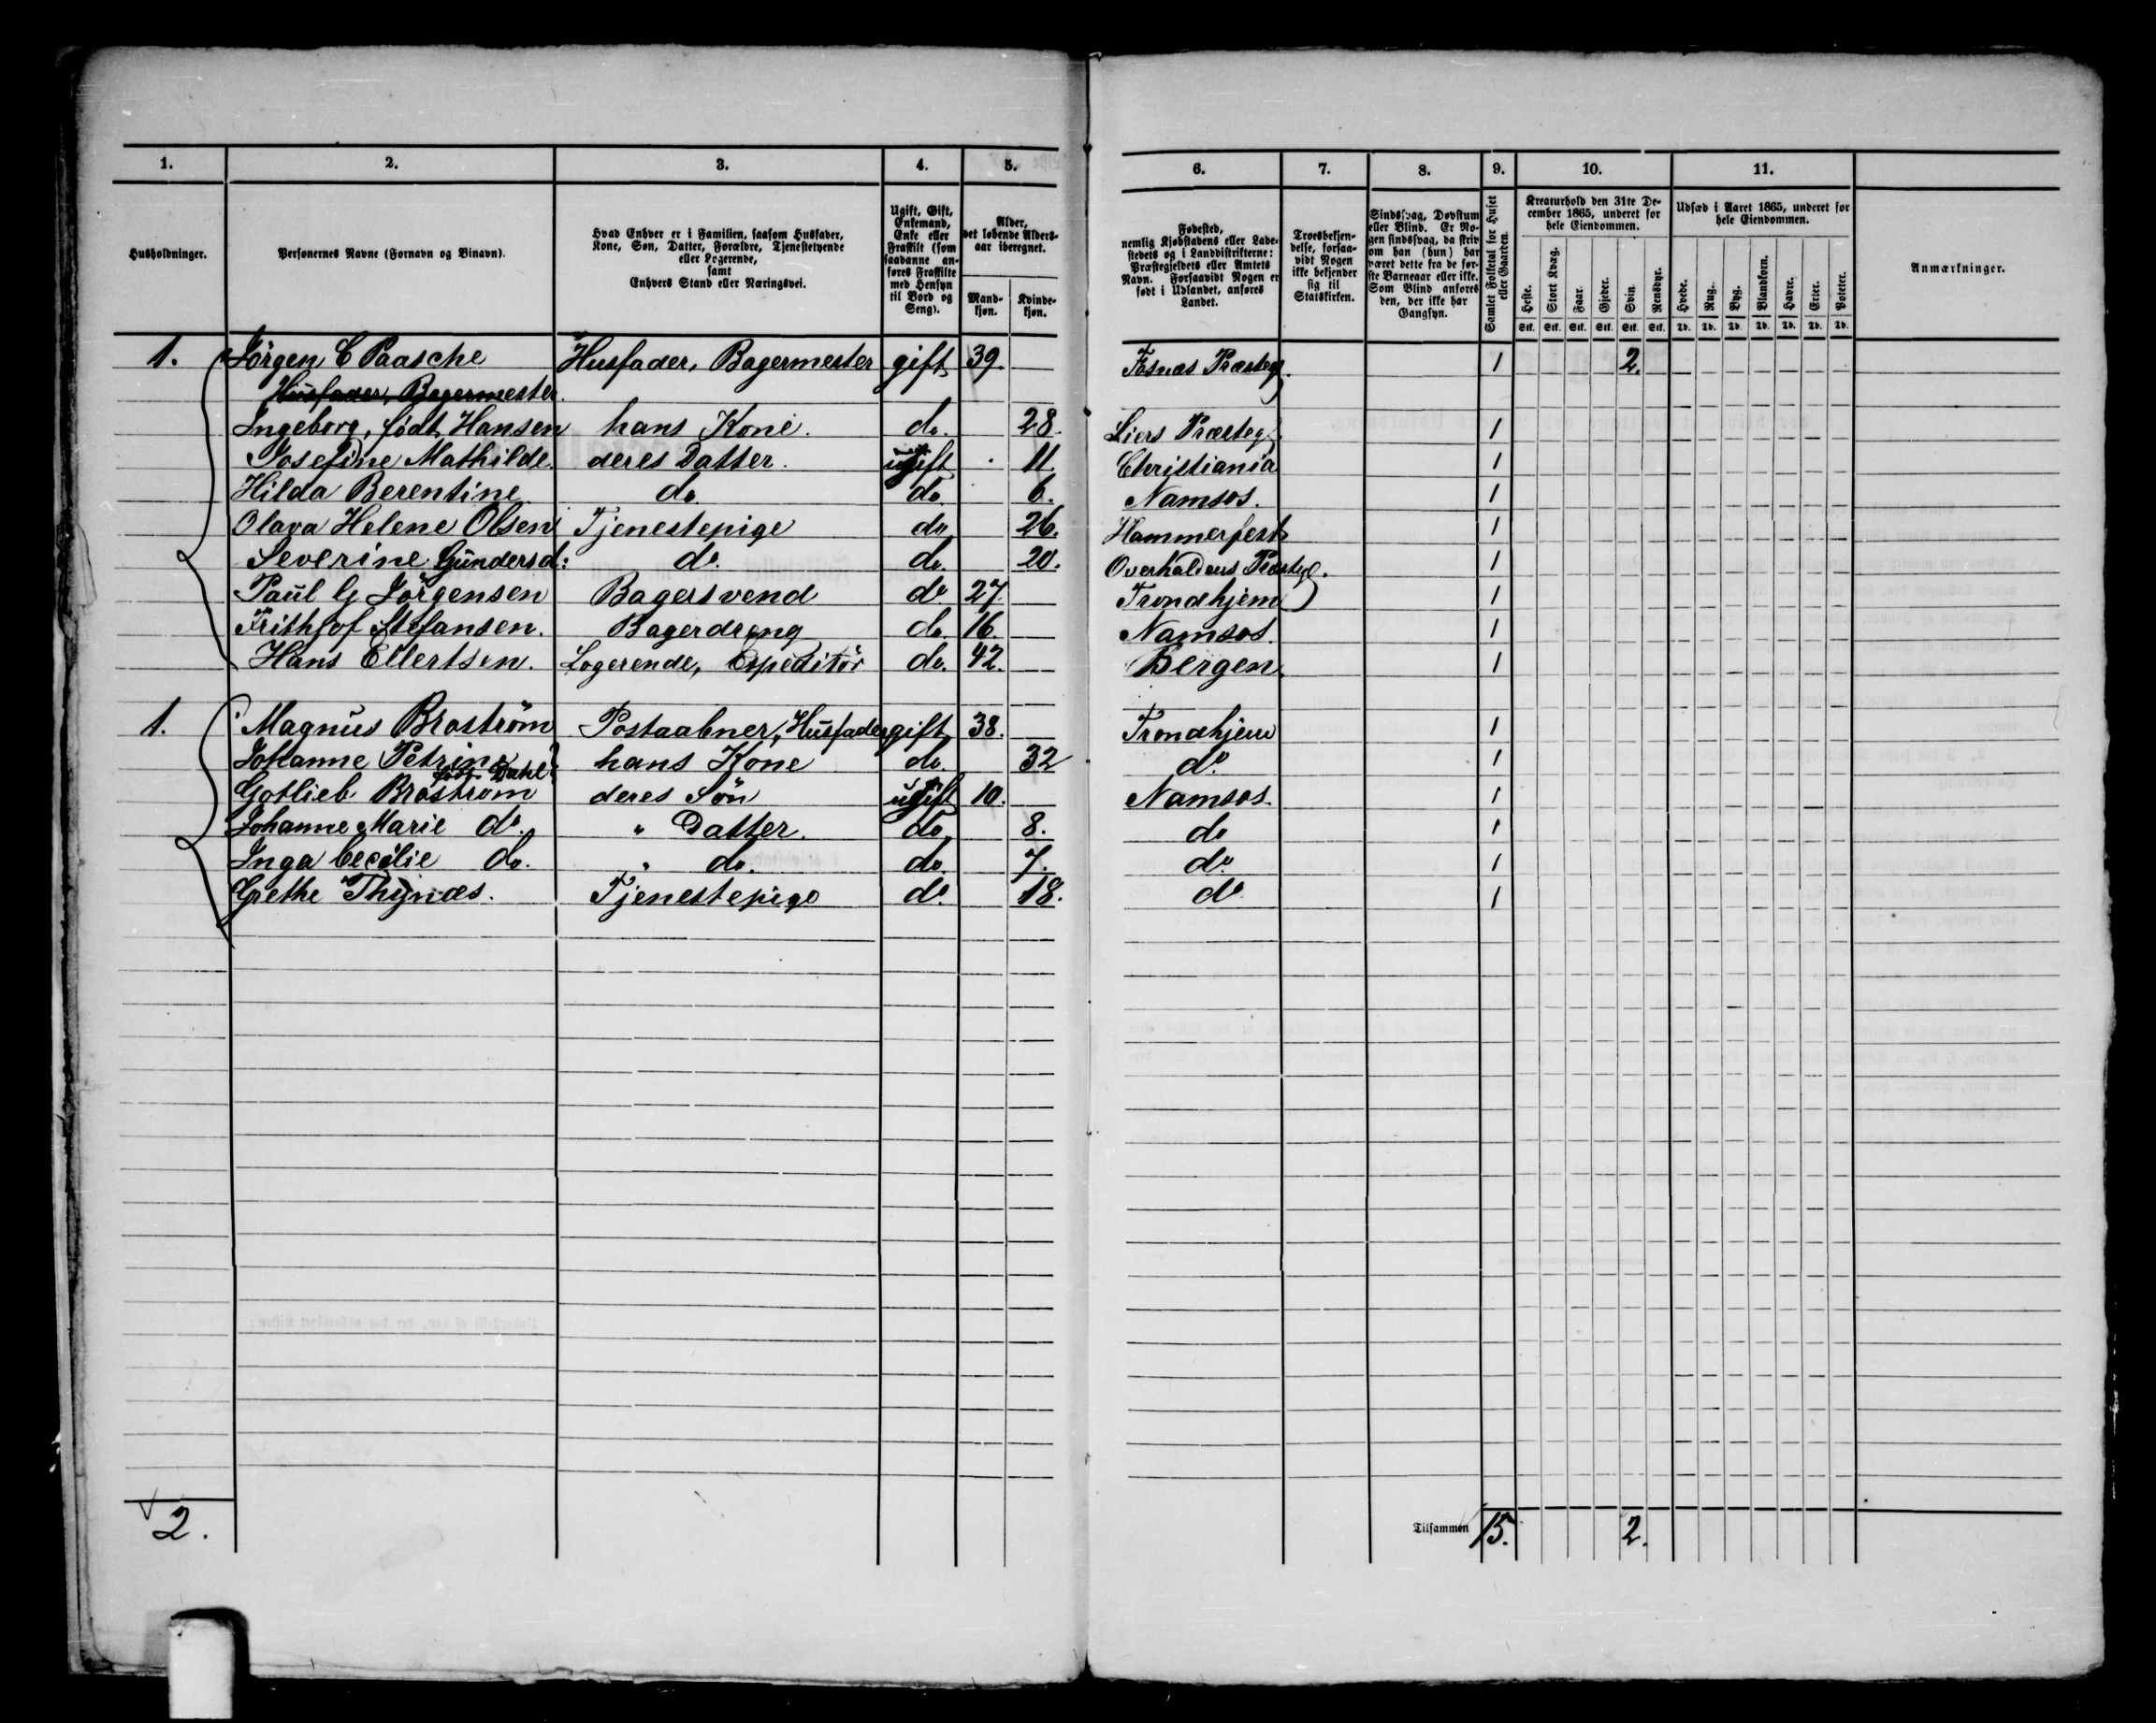 1. 2. 3. 4. 5. 6. 7. 8. 9. 10. 11.
Husholdninger.
Personernes Navne (Fornavn og Binavn).
Hvad Enhver er i Familien, saasom Husfader,
Kone, Søn, Datter, Forældre, Tjenestetyende
eller Logerende,
samt
Enhvers Stand eller Næringsvei.
Ugift, Gift,
Enkemand,
Enke eller
Fraskilt (som
saadanne an-
føres Fraskilte
med Hensyn
til Bord og
Seng).
Alder,
det løbende Alders-
aar iberegnet.
Mand-
kjøn.
Kvinde-
kjøn.
Fødested,
nemlig Kjøbstadens eller Lade-
stedets og i Landdistrikterne:
Præstegjeldets eller Amtets
Navn. Forsaavidt Nogen er
født i Udlandet, anføres
Landet.
Troesbekjen-
delse, forsaa-
vidt Nogen
ikke bekjender
sig til
Statskirken.
Sindssvag, Døvstum
eller Blind. Er No-
gen sindssvag, da skriv
om han (hun) har
været dette fra de før-
ste Barneaar eller ikke.
Som Blind anføres
den, der ikke har
Gangsyn.
Samlet Folketal for Huset
eller Gaarden.
Kreaturhold den 31te De-
cember 1865, underet for
hele Eiendommen.
Heste. Stort Kvæg. Faar. Gjeder. Svin. Rensdyr.
Stk. Stk. Stk. Stk. Stk. Stk.
Udsæd i Aaret 1865, underet for
hele Eiendommen.
Hvede. Rug. Byg. Blandkorn. Havre. Erter. Poteter.
Td. Td. Td. Td. Td. Td. Td.
Anmærkninger.
1. Jörgen C Paasche Husfader, Bagermester gift 39. Fosnæs Præsteg. 1 2.
Husfader, Bagermester.
Ingeborg, født Hansen hans Kone. do. 28. Liers Præsteg. 1
Josefine Mathilde. deres Datter. ugift 11. Christiania 1
Hilda Berentine do. do. 6. Namsos. 1
Olava Helene Olsen Tjenestepige do 26. Hammerfest 1
Severine Gundersd: do. do. 20. Overhaldens Præstg. 1
Paul G Jörgensen Bagersvend do 27. Trondhjem 1
Frithjof Stefansen. Bagerdreng do. 16. Namsos. 1
Hans Ellertsen. Logerende, Expeditör do. 42. Bergen. 1
1. Magnus Broström Postaabner, Husfader gift 38. Trondhjem 1
Johanne Petrine født Dahl hans Kone do. 32 do. 1
Gotlieb Broström deres Sön ugift 10. Namsos. 1
Johanne Marie do. " Datter. do 8. do 1
Inga Cecilie do. " do. do. 7. do. 1
Grethe Thynæs. Tjenestepige do. 18. do 1
2.
Tilsammen 15. 2.